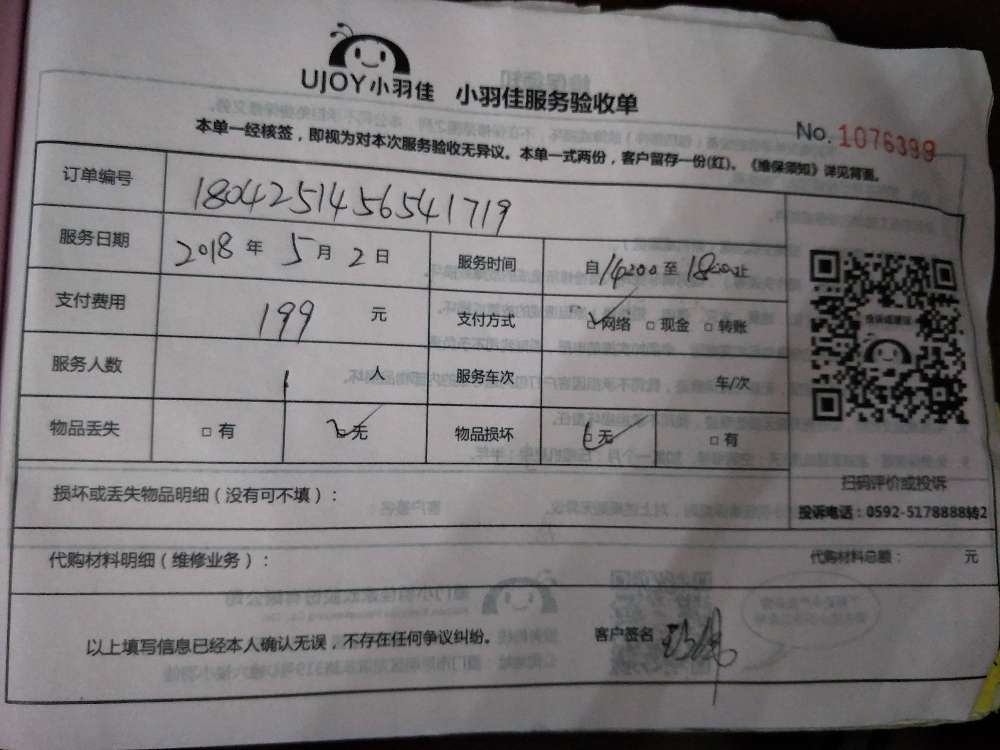 UJOY小羽佳 小羽佳服务验收单
No. 1076399
本单一经核签，即视为对本次服务验收无异议。本单一式两份，客户留存一份(红)。《维保须知》详见背面。
订单编号 1804251456541719
服务日期 2018年5月2日 服务时间 自14:00至18:00止
支付费用 199 元 支付方式 ☑网络 □现金 □转账
服务人数 1 人 服务车次 车/次
物品丢失 □有 ☑无 物品损坏 ☑无 □有
投诉或建议
扫码评价或投诉
投诉电话：0592-5178888转2
损坏或丢失物品明细（没有可不填）：
代购材料明细（维修业务）： 代购材料总额： 元
以上填写信息已经本人确认无误，不存在任何争议纠纷。 客户签名：